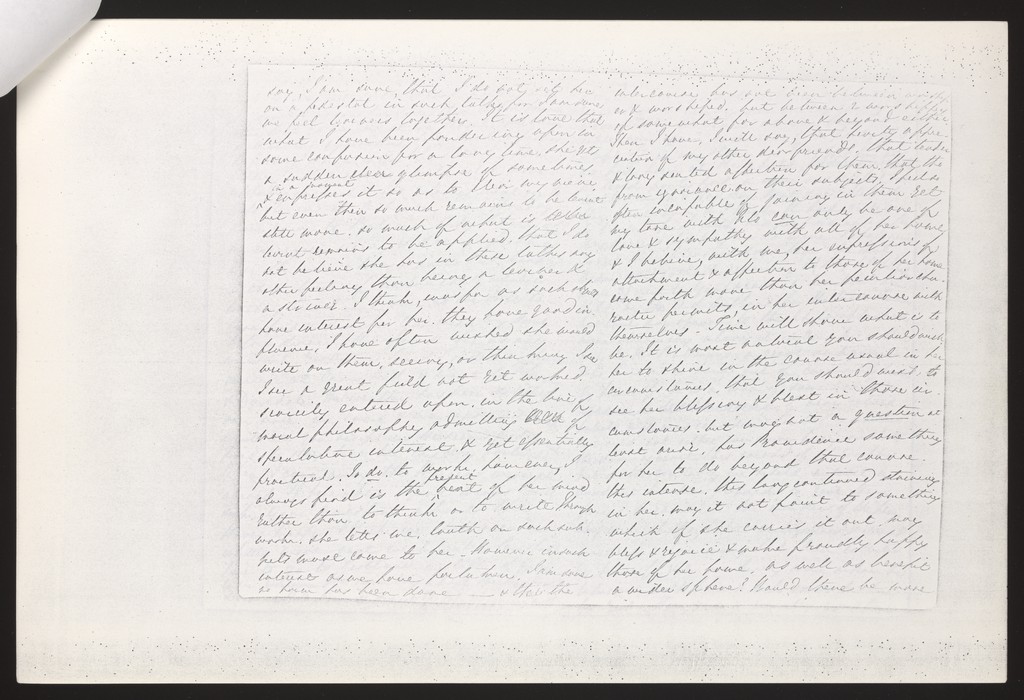 say, I am sure, that I do not set her
on a pedestal in such talks, for I am sure
we feel learners together. It is love that
what I have been pondering upon in
some confusion for a long time, she gets
a sudden clear glimpse of sometimes,
& in a moment expresses it so as to clear my view,
but even then so much remains to be learnt
still more, so much of what is
learnt remains to be applied, that I do
not believe she has in these talks any
other feelings than being a learner &
a striver. I think, as far as such
have interest for her, they have good in
fluence. I have often wished she would
write on them, seeing, or thinking I see
I see a great field not yet worked,
scarcely entered upon, in the line of
moral philosophy, admitting of
speculative interest, & yet essentially
practical. To do, to work, however, I
always find is the present bent of her mind
rather than to think or to write though
work, she tells me, truth on such sub-
jects must come to her. However in such
interest as we have for them, I am sure
no harm has been done — & then the
intercourse has not been between
& worshipped, but between 2 worshippers
of somewhat far above & beyond either
Then I have, I will say, that hearty appre-
ciation of my other dear friends, that tender
& long seated affection for them, that tho'
from ignorance on their subjects, I feel so
often incapable of joining in them yet
my tone with Flo can only be one of
love & sympathy with all of her home,
& I believe, with me, her expressions of
attachment & affection to those of her home
come forth more than her peculiar cha-
racter permits, in her intercourse with
themselves. Time will show what is to
be. It is most natural you should wish
her to shine in the course usual in her
circumstances, that you should wish to
see her blessing & blest in those cir-
cumstances, but may not a question at
least arise, has Providence something
for her to do beyond that course.
this intense, this long continued striving
in her, may it not point to something
which if she carries it out may
bless & rejoice & make proudly happy
those of her home, as well as benefit
a wider sphere? Would there be more